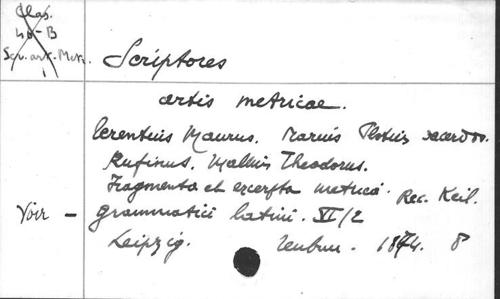 Clas.
40-B
Scr. art. Metr.
Scriptores
artis metricae.
Terentius Maurus. Marius Plotius sacerdos.
Rufinus. Mallius Theodorus.
Fragmenta et excerpta metrica. Rec. Keil.
Voir - grammatici latini. VI/2
Leipzig. Teubner. 1874. 8